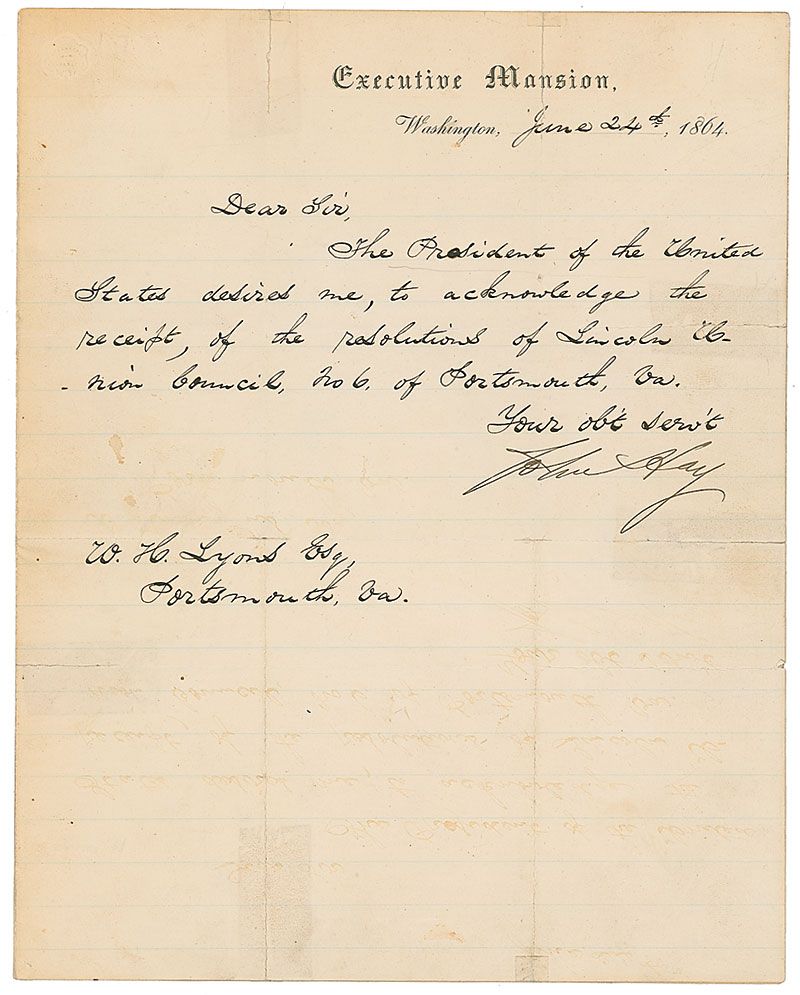 Executive Mansion,
Washington, June 24th, 1864.
Dear Sir,
The President of the United
States desires me, to acknowledge the
receipt, of the resolutions of Lincoln U-
-nion Council, No 6. of Portsmouth, Va.
Your obt servt
John Hay
W. H. Lyons Esq,
Portsmouth, Va.